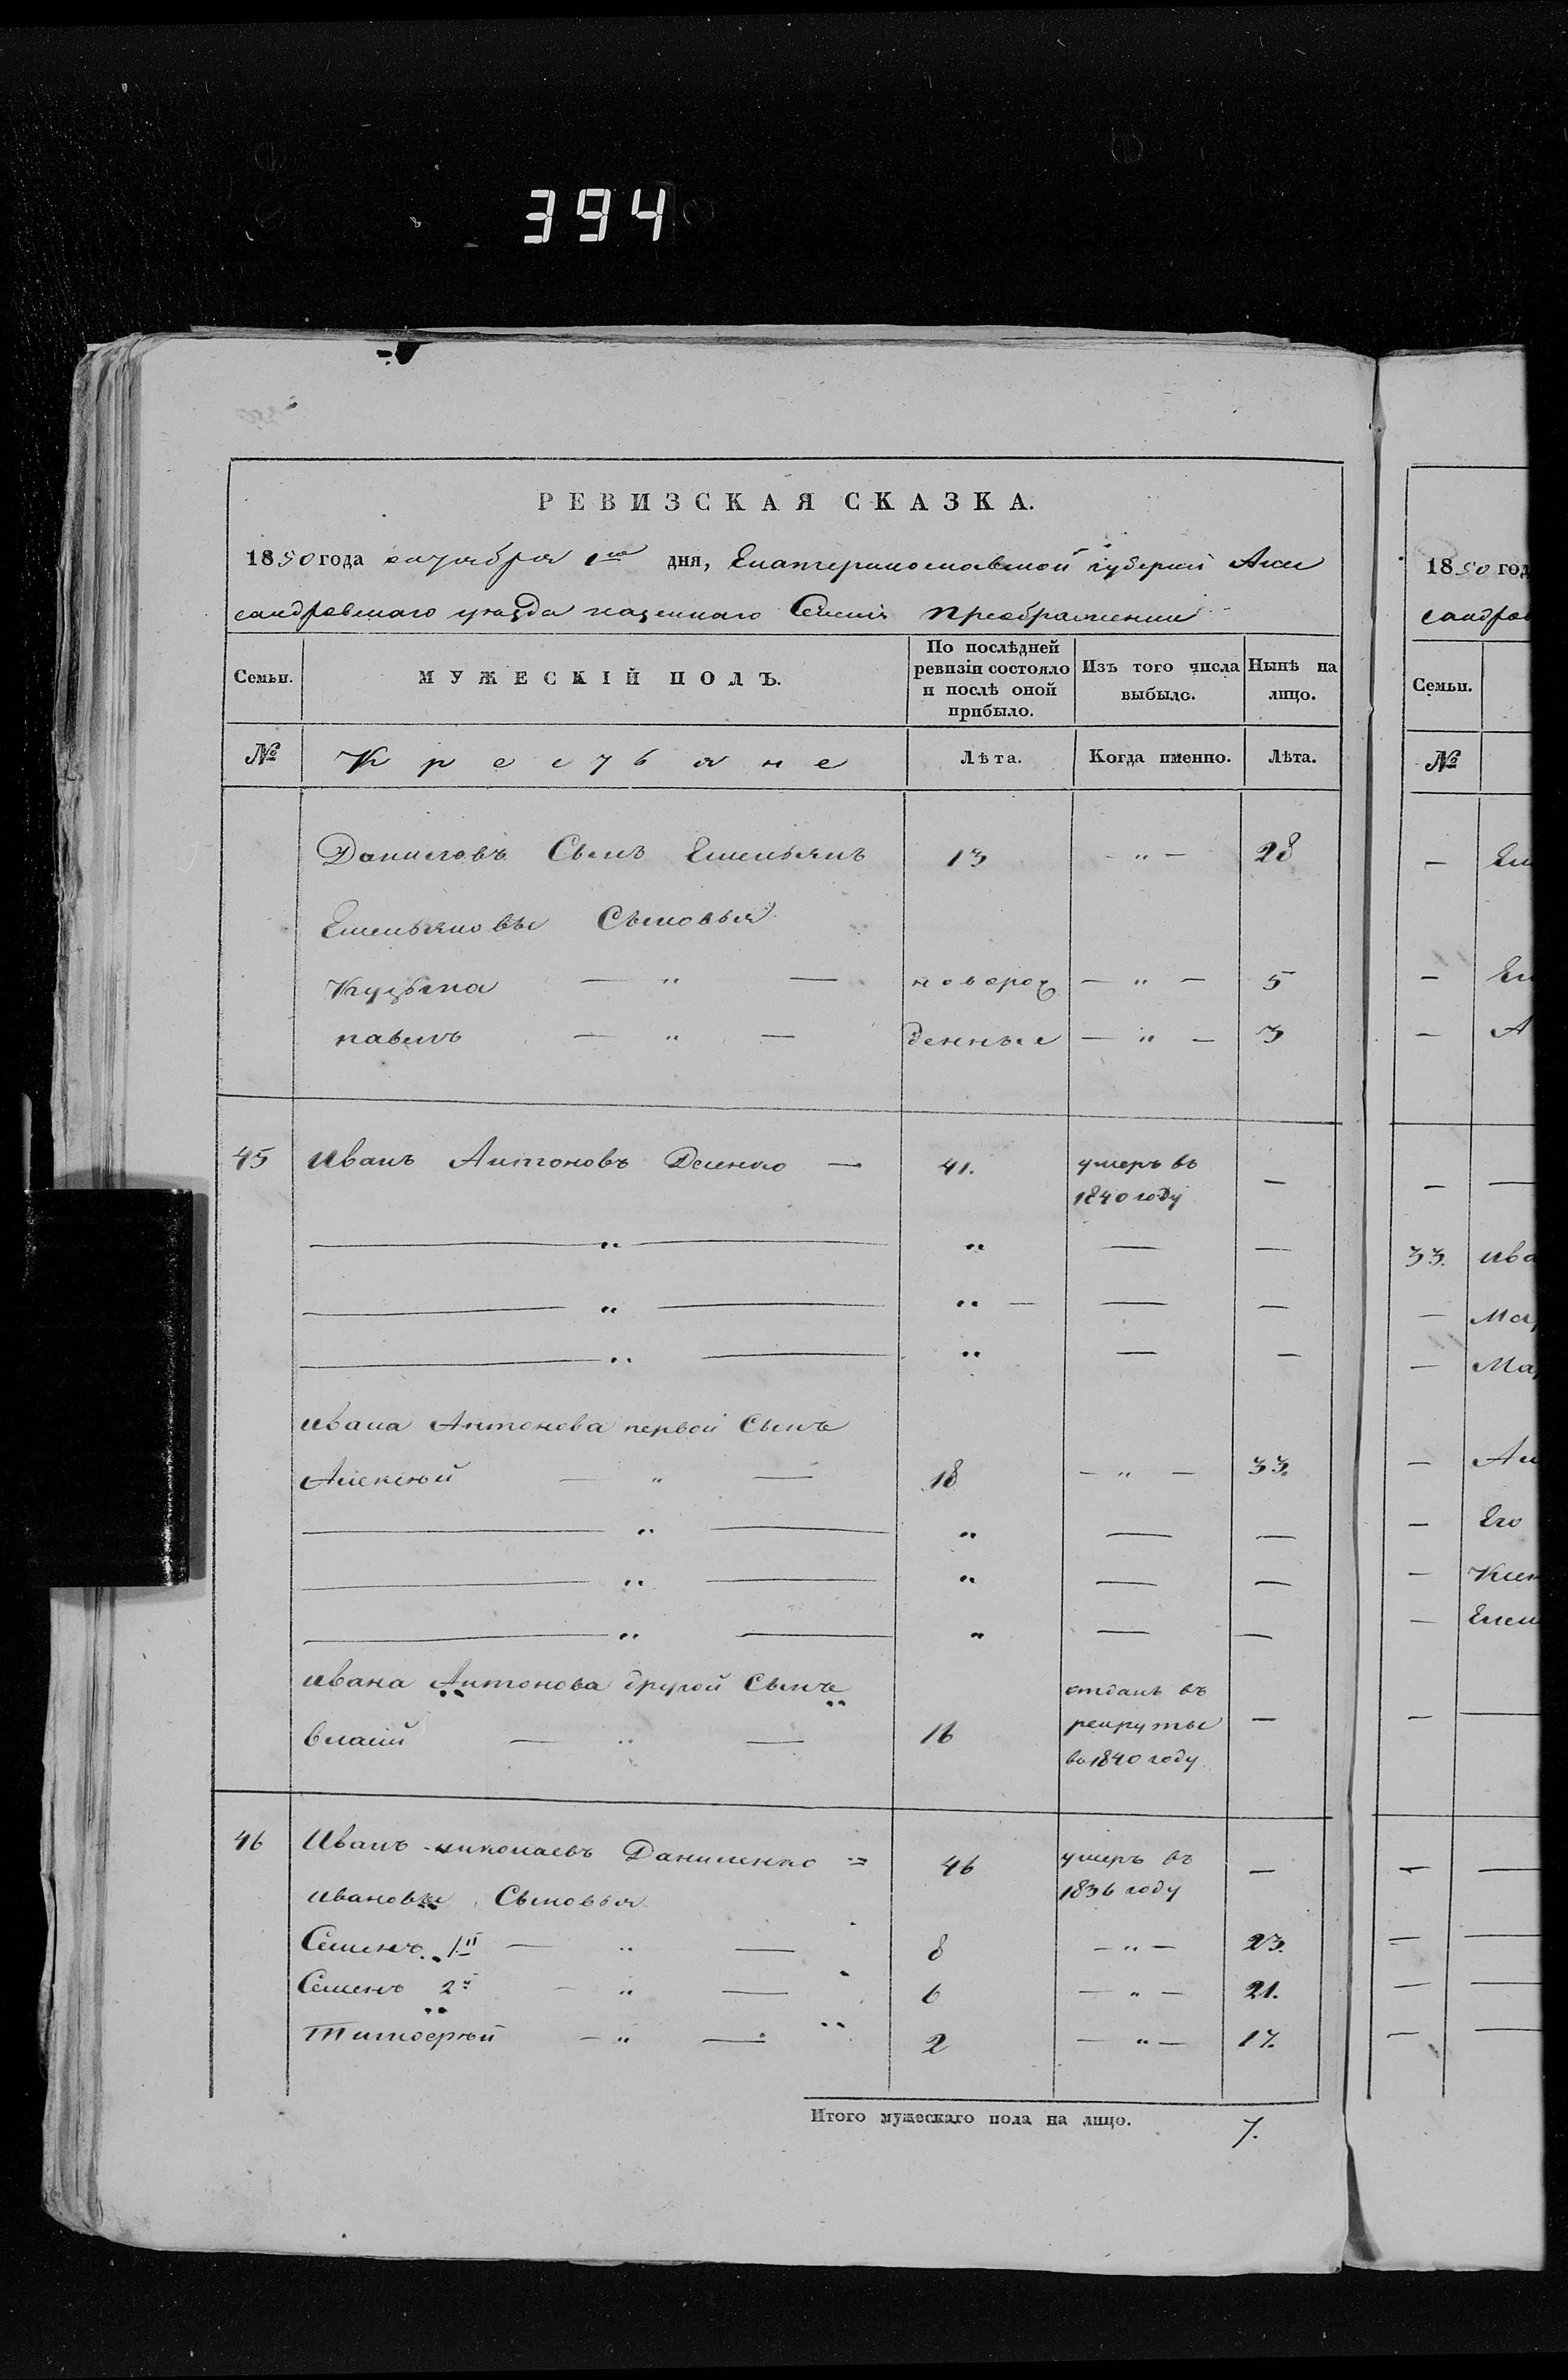 394
РЕВИЗСКАЯ СКАЗКА.
1850 года октября 1го дня, Екатеринославской губернии Алек
сандровскаго уѣзда казеннаго Селенія Преображенки
Семьи. МУЖЕСКІЙ ПОЛЪ. По послѣдней ревизіи состояло и послѣ оной прибыло. Изъ того числа выбыло. Нынѣ на лицо.
№ Крестьяне Лѣта. Когда именно. Лѣта.
Даниловъ Сынъ Емельянъ 13 — " — 28
Емельяновы Сыновья
Кузьма — " — новорож — " — 5
павелъ — " — денные — " — 3
45 Иванъ Антоновъ — 41. умеръ въ 1840 году —
— " — " — —
— " — " — — —
— " — " — —
Ивана Антонова первой Сынъ
Алексѣй — " — 18 — " — 33.
— " — " — —
— " — " — —
— " — " — —
Ивана Антонова другой Сынъ
Власій — " — 16 отданъ въ рекруты въ 1840 году —
46 Иванъ николаевъ Даниленко = 46 умеръ въ 1836 году —
ивановы Сыновья
Семенъ 1й — " — 8 — " — 23.
Семенъ 2й — " — 6 — " — 21.
Тимоѳей — " — 2 — " — 17.
Итого мужескаго пола на лицо. 7.
1850 год
сандров
Семьи.
№
—
—
— А
— —
33. Ива
— Мар
— Мар
—
— Его
—
—
— —
— —
— —
— —
— —